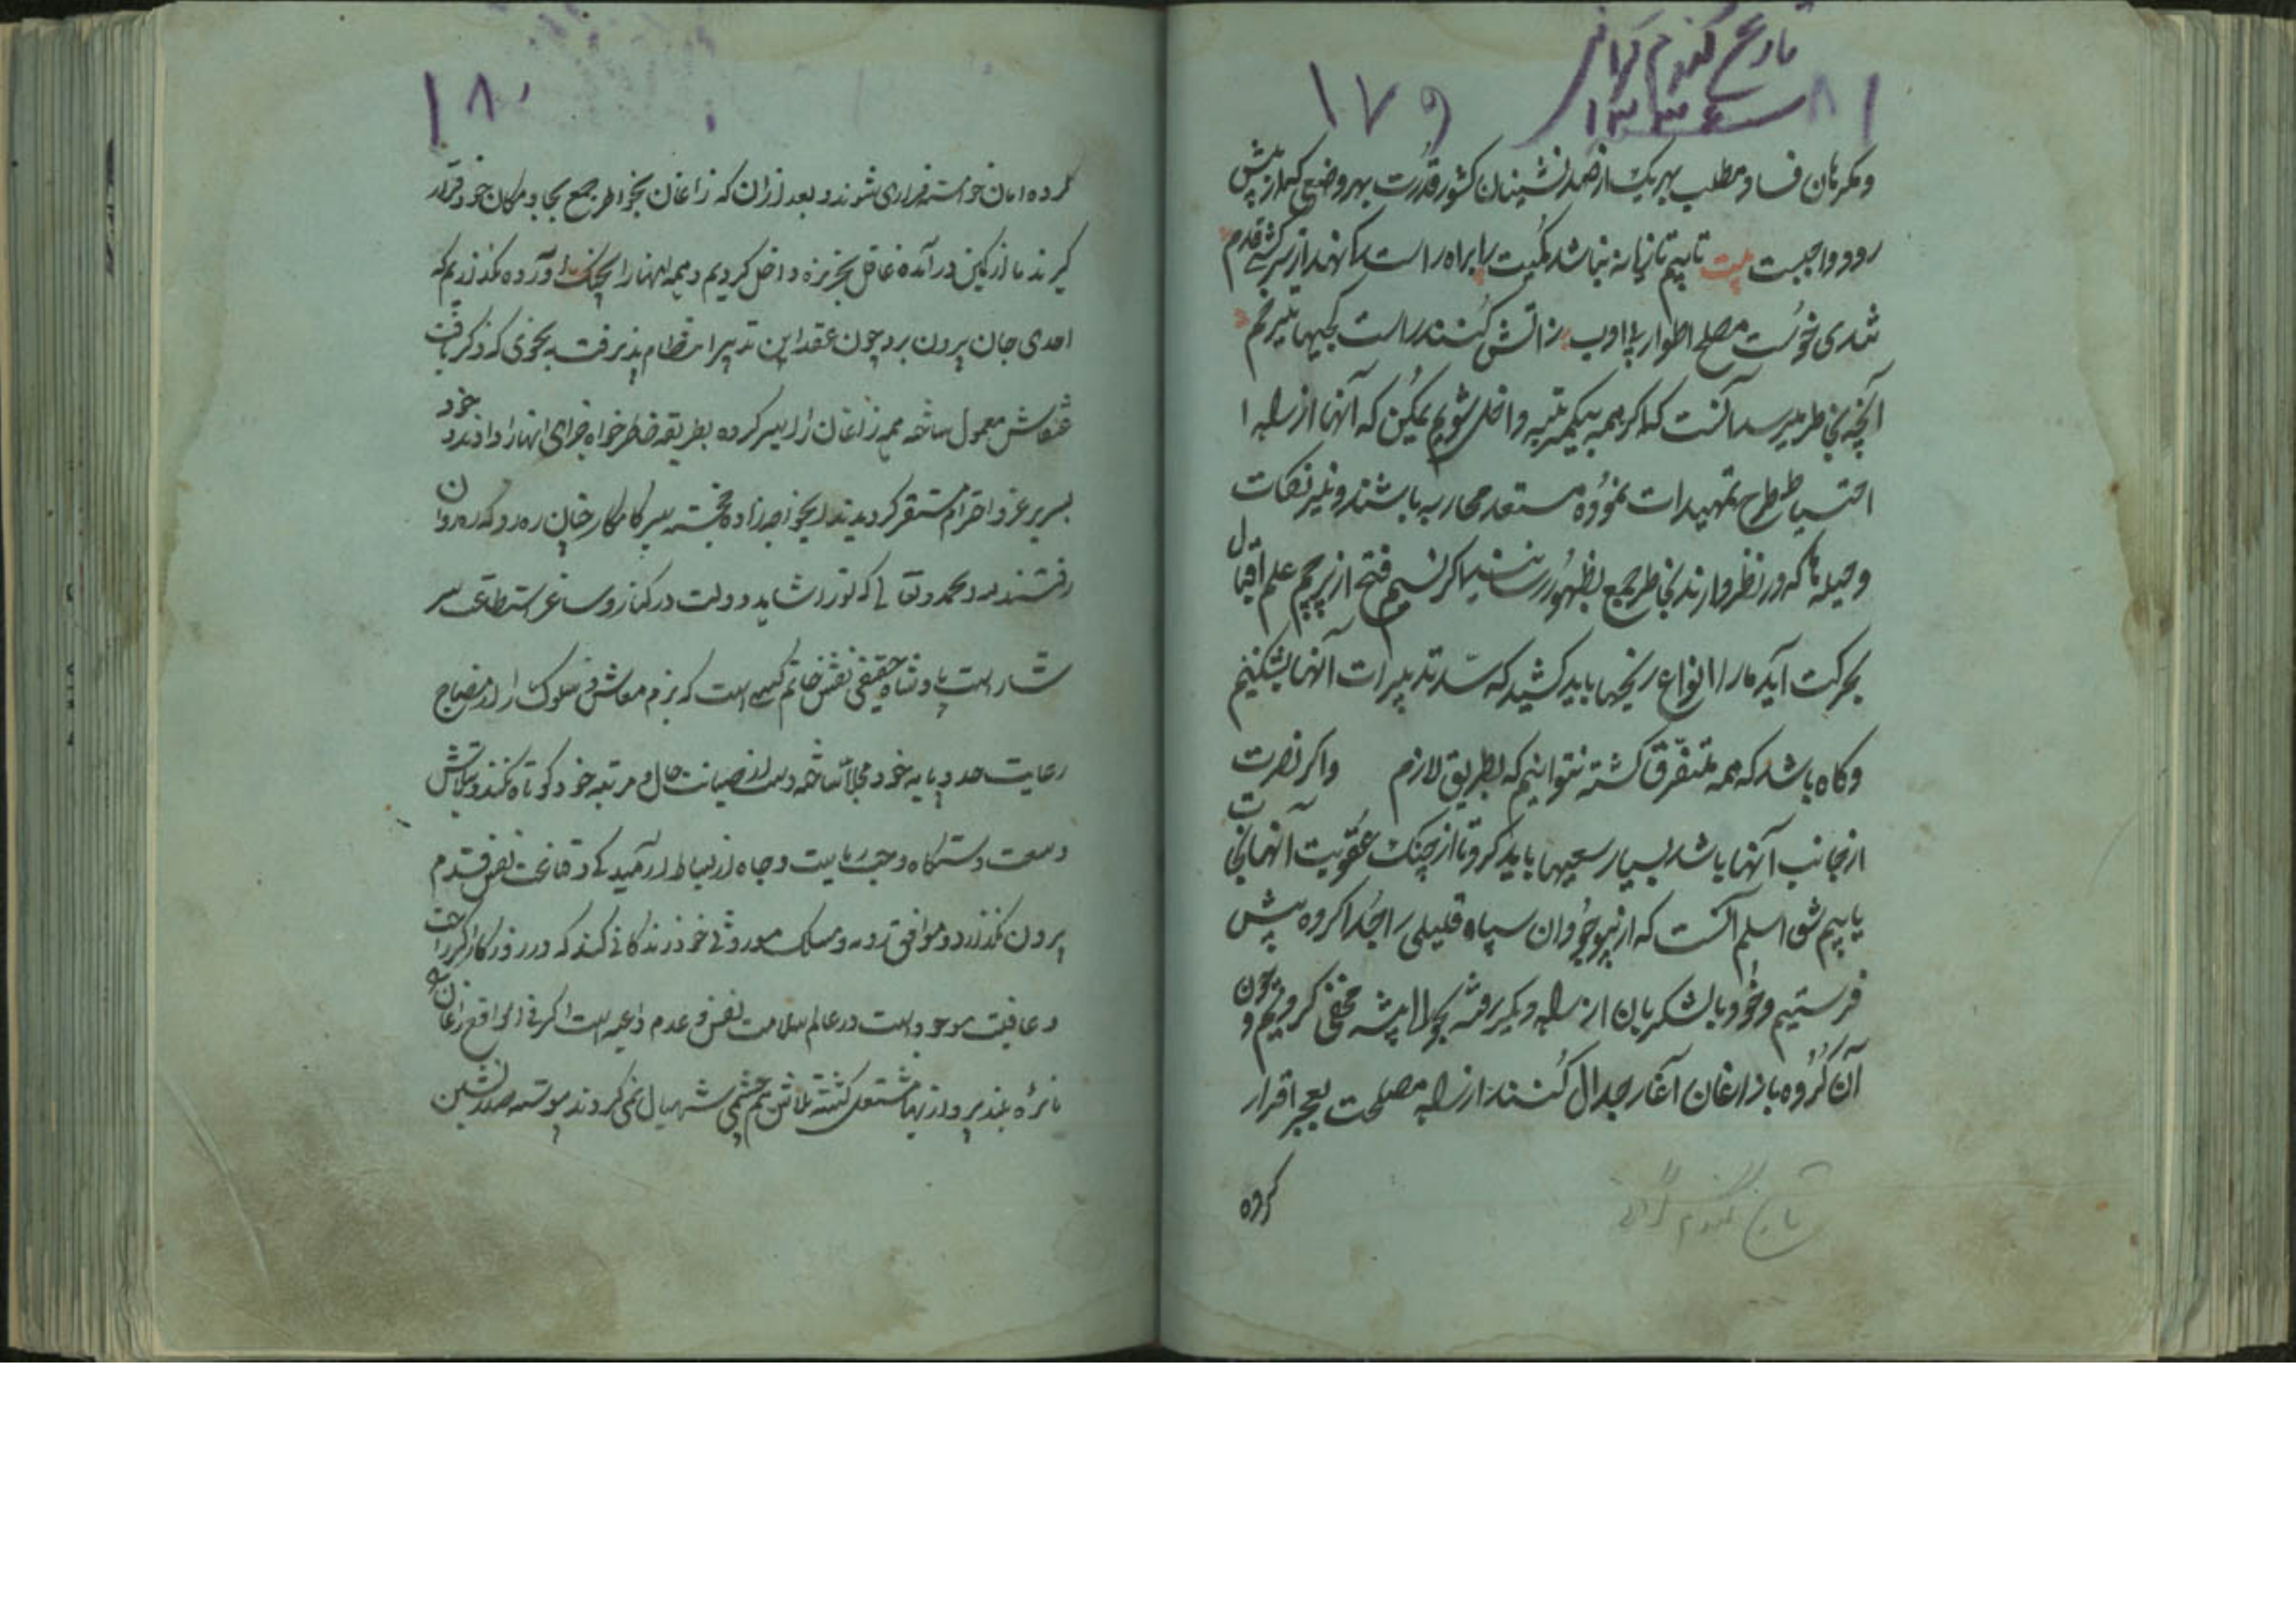 تاریخ گندم گرانی
۱۳۳۶
۱۷۹
۸۱
و مکرهان فساد مطلب بهریک از صدرنشینان کشور قدرت بهر وضعی که از پیش
رود واجبست بیت تا بیم تازیانه نباشد کمیت را براه راست نهد از سرکشی قدم
شدی خوست مصلح اطوار بی ادب ز اتش کنند راست کجیها تیر هم
آنچه بخاطر میرسد آنست که اگر همه بیکمرتبه داخل شویم یمکن که آنها از راه
احتیاط طرح تمهیدات نموده مستعد محاربه باشند و نیرنکات
و حیله ها که در نظر دارند بخاطر جمع بظهور رسانند اگر نسیم فتح از پرچم علم اقبال
بحرکت آید ما را انواع رنجها باید کشید که سد تدبیرات آنها بشکنیم
و کاه باشد که همه متفرق کشته نتوانیم که بطریق لازم و اکر نصرت
از جانب آنها باشد بسیار سعیها باید کرد تا از چنک عقوبت آنها نجات
یابیم شق اسلم آنست که از نیو جوان سپاه قلیلی را جدا کرده پیش
فرستیم و خود با لشکریان از راه دیگر رفته بحوالی بیشه مخفی کردیم و چون
آن گروه با زاغان آغاز جدال کنند از راه مصلحت بعجز اقرار
کرده
تاریخ گندم گرانی
۱۸۰
کرده امان خواسته فراری شوند و بعد از ان که زاغان بخواطر جمع بجا و مکان خود قرار
کیرند ما از کمین در آمده غافل بجزیزه داخل کردیم و همه انها را بچنک آورده نکذاریم که
احدی جان بیرون برد چون عقد این تدبیر انتظام پذیرفت بنحوی که ذکر یافت
معمول ساخته همه زاغان را اسیر کرده بطریقه خاطرخواه جزای انها را دادند و خود
بسریر عز و احترام مستقر کردیدند ایخواجه زاده خجسته سیر کامکار چنان ره رو که ره روان
رفتند
شار است پادشاه حقیقی نقش خاتم کسی است که بزم معاش و سلوک را از مصباح
رعایت حد و پایه خود مجلا ساخته دست از صیانت حال و مرتبه خود کوتاه نکند و بتلاش
وسعت دستگاه و حب ریاست و جاه از بساط ارمیدکی و قناعت نفس قدم
بیرون نکذارد و موافق رویه و مسلک موروثی خود زندگانی کند که در روزگار اگر راحت
و عافیت موجود است در عالم سلامت نفس و عدم داعیه است اگر فی الواقع زاغان
نائره بلندپروازیها مشتعل کشته تلاش هم چشمی شهبال نمی کردند پیوسته صدرنشین